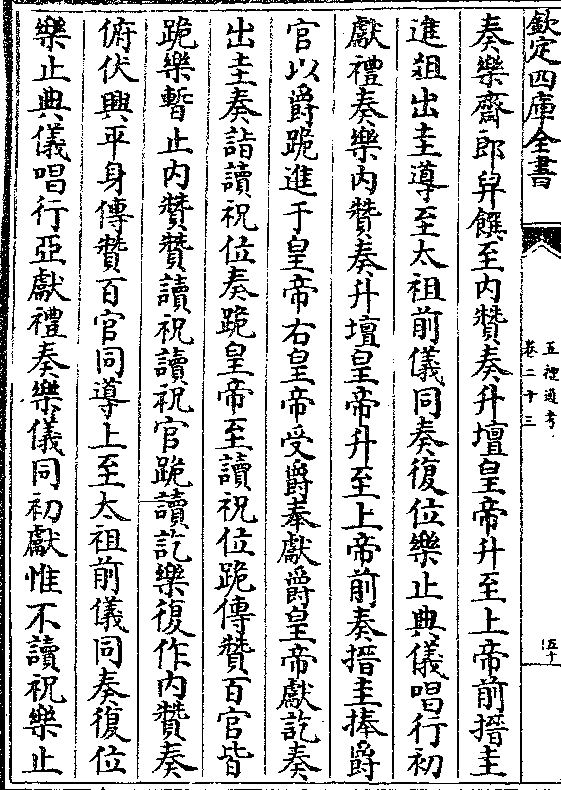 欽定四庫全書
五禮通考
卷二十三
五十
奏樂齋郎舁饌至内贊奏升壇皇帝升至上帝前搢圭
進俎出圭導至太祖前儀同奏復位樂止典儀唱行初
獻禮奏樂内贊奏升壇皇帝升至上帝前奏搢圭捧爵
官以爵跪進于皇帝右皇帝受爵奉獻爵皇帝獻訖奏
出圭奏詣讀祝位奏跪皇帝至讀祝位跪傳贊百官皆
跪樂暫止内贊贊讀祝讀祝官跪讀訖樂復作内贊奏
俯伏興平身傳贊百官同導上至太祖前儀同奏復位
樂止典儀唱行亞獻禮奏樂儀同初獻惟不讀祝樂止